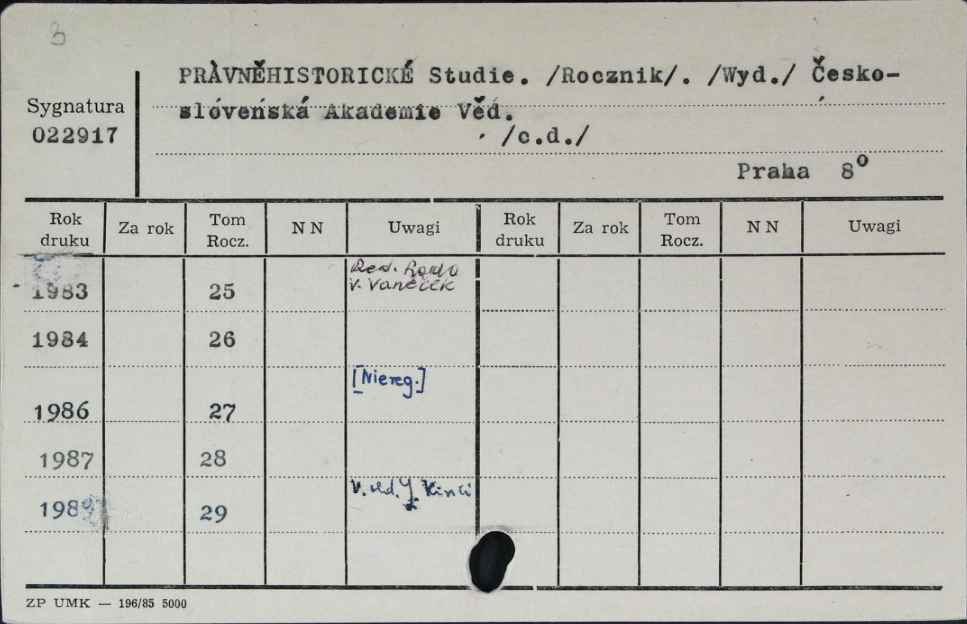 3
PRÀVNĚHISTORICKÉ Studie. /Rocznik/. /Wyd./ Česko-
slóveńská Akademie Věd.
Sygnatura
022917
/c.d./
Praha 8º
Rok druku Za rok Tom Rocz. N N Uwagi Rok druku Za rok Tom Rocz. N N Uwagi
Red. Rada
1983 25 V. Vaněček
1984 26
[Niereg.]
1986 27
1987 28
V. red.
1989 29
ZP UMK — 196/85 5000